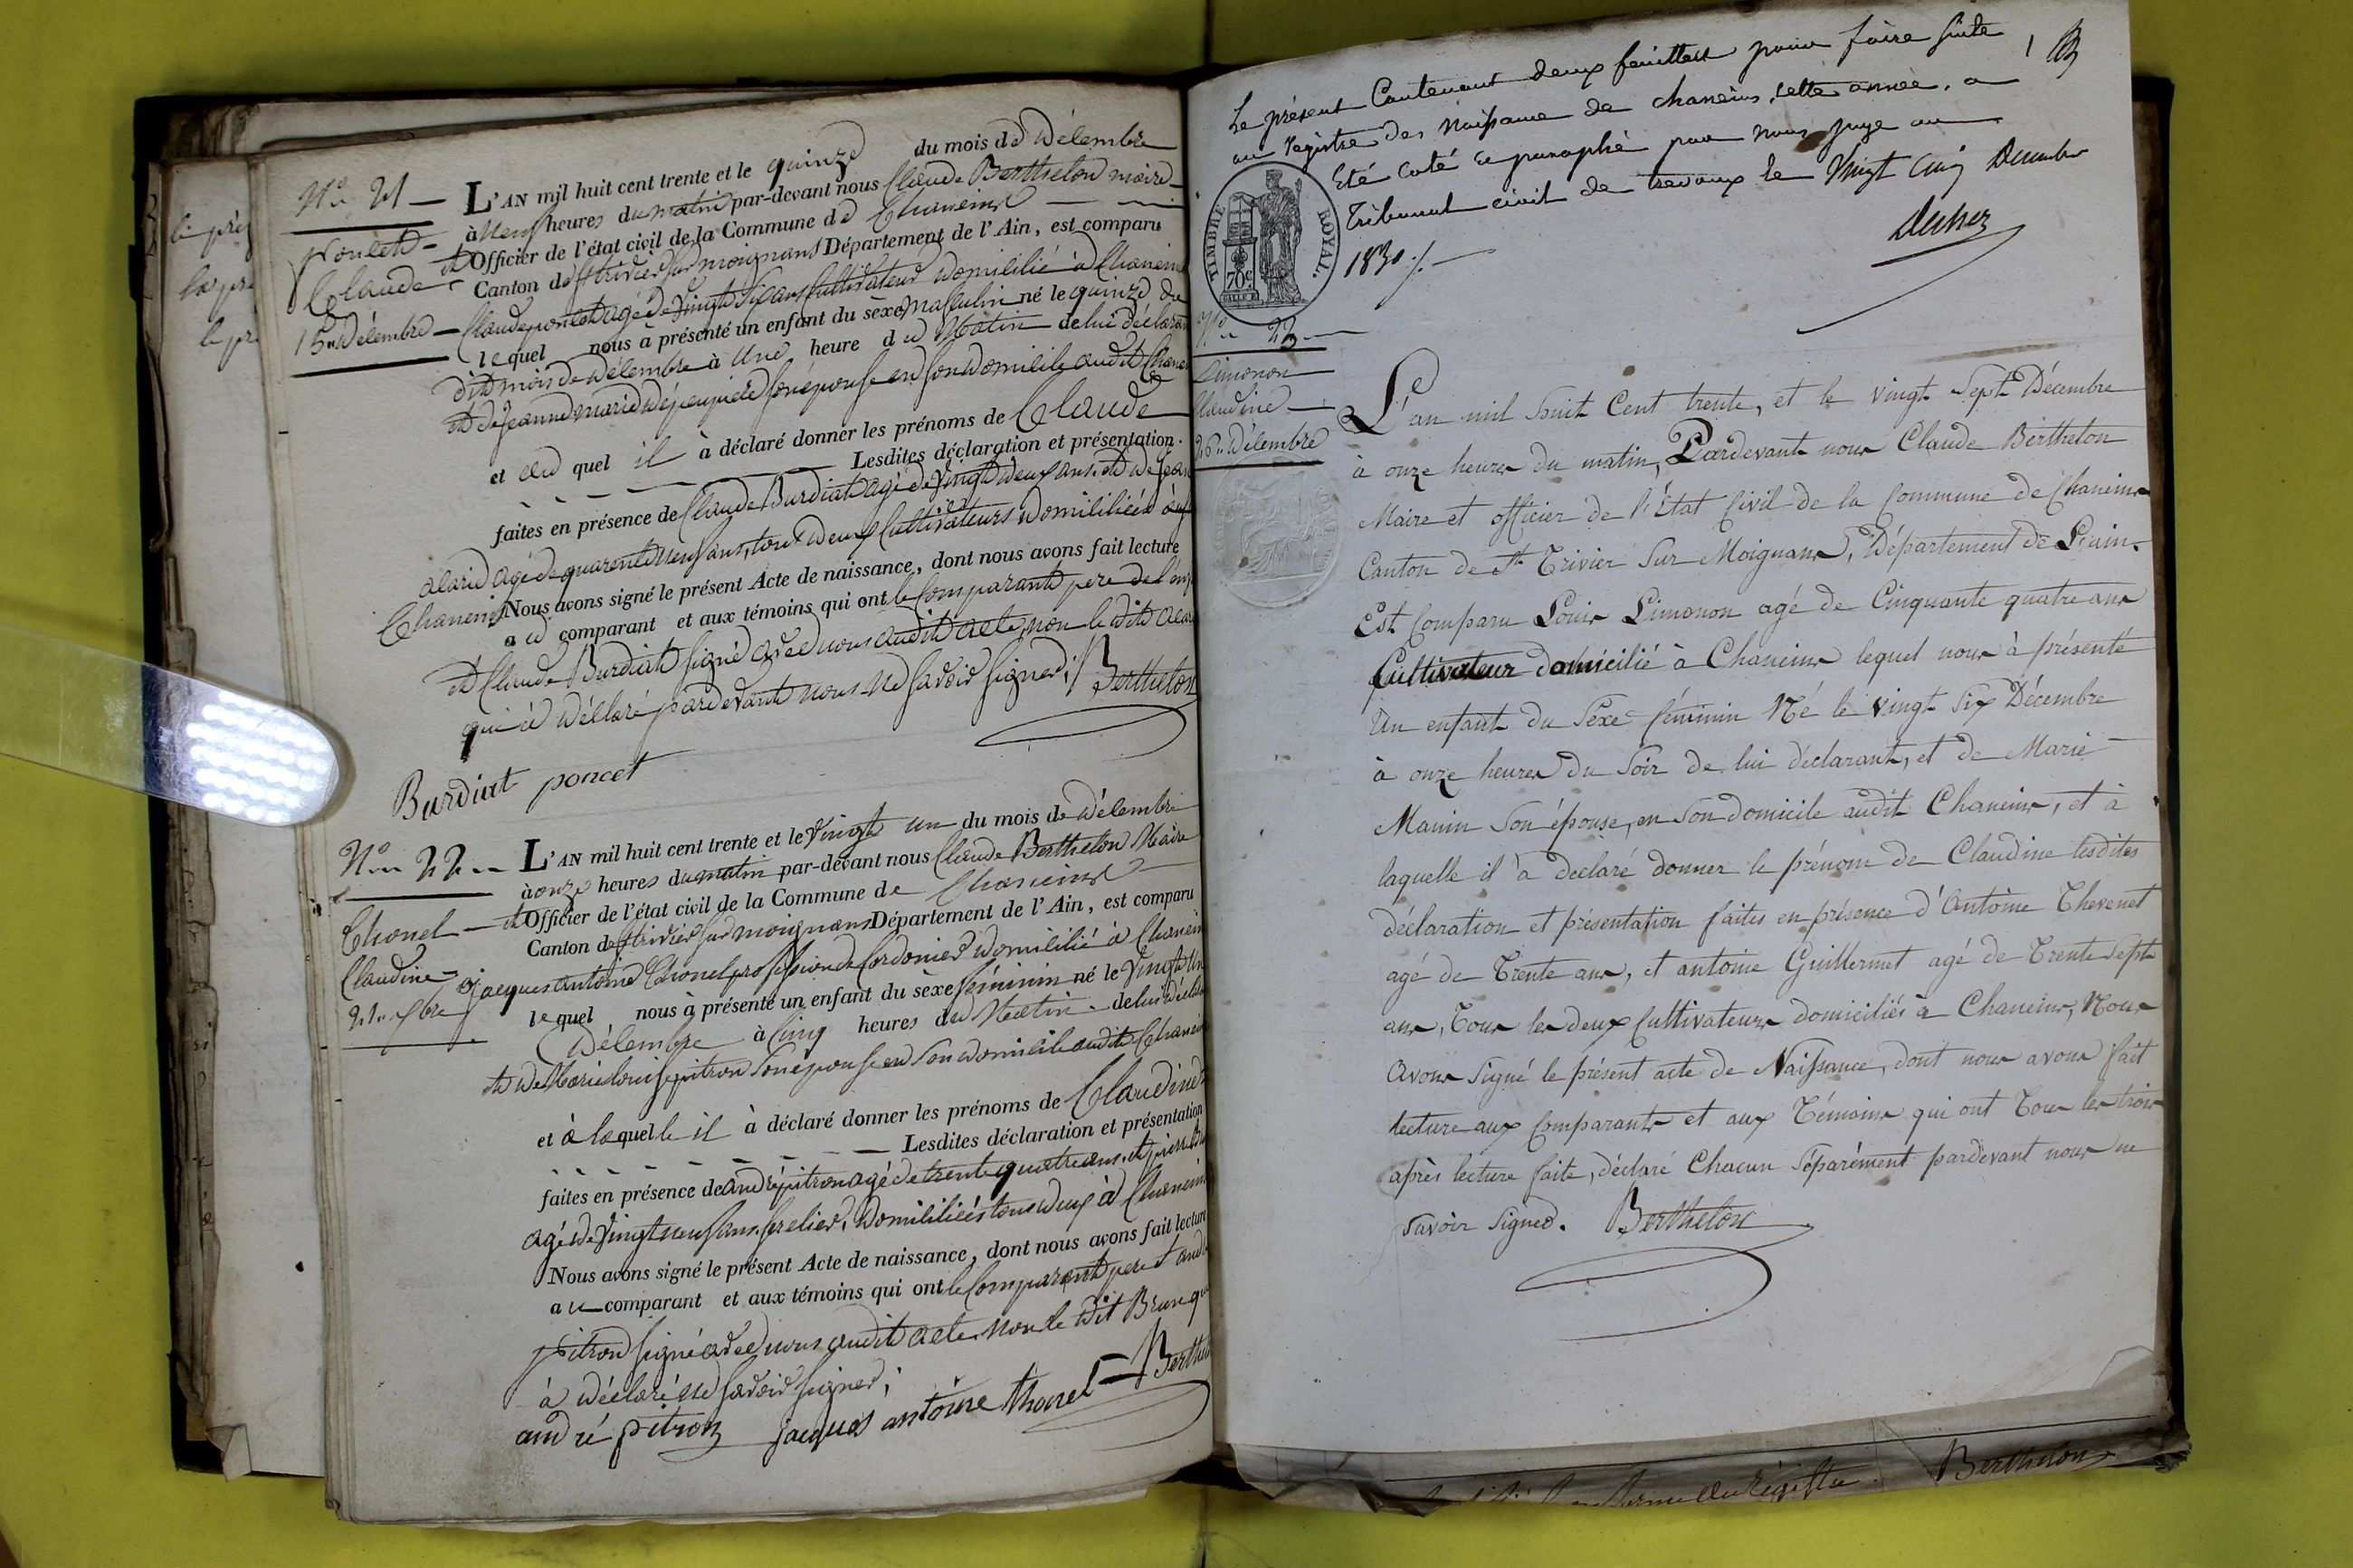 N.° 21 —
poncet
Claude
15 Décembre
L'AN mil huit cent trente et le quinze du mois de Décembre
à neuf heures du matin par-devant nous Claude Berthelon maire
et Officier de l'état civil de la Commune de Chaneins
Canton de St trivier sur moignans Département de l'Ain, est comparu
Claude poncet agé de vingt six ans Cultivateur domicilié à Chaneins
lequel nous à présenté un enfant du sèxe masculin né le quinze du
dit mois de Décembre à une heure du Matin de lui déclarant
et de jeanne marie son épouse en son domicile audit Chaneins
et au quel il à déclaré donner les prénoms de Claude
Lesdites déclaration et présentation
faites en présence de Claude Burdiat agé de vingt deux ans et de
agé de quarante neuf ans, tous deux Cultivateurs domiciliés à
Chaneins Nous avons signé le présent Acte de naissance, dont nous avons fait lecture
au comparant et aux témoins qui ont le Comparant pere de
et Claude Burdiat signé avec nous audit acte, non le dit
qui à déclaré pardevant nous ne savoir signer; Berthelon
Burdiat poncet
N.° 22
Thonel
Claudine
21 Xbre
L'AN mil huit cent trente et le vingt un du mois de Décembre
à onze heures du matin par-devant nous Claude Berthelon Maire
et Officier de l'état civil de la Commune de Chaneins
Canton de St trivier sur moignans Département de l'Ain, est comparu
jacques antoine Thonel profession de Cordonier domicilié à Chaneins
lequel nous à présenté un enfant du sèxe féminin né le vingt un
Décembre à Cinq heures du Matin de lui déclarant
et de Marie louise pitron son épouse en son domicile audit Chaneins
et à laquelle il à déclaré donner les prénoms de Claudine
Lesdites déclaration et présentation
faites en présence de andré pitron agé de trente quatre ans, et
agé de vingt neuf ans, domiciliés tous deux à Chaneins
Nous avons signé le présent Acte de naissance, dont nous avons fait lecture
au comparant et aux témoins qui ont le Comparant pere et
pitron signé avec nous audit acte, non le dit Brun qui
à déclaré ne savoir signer;
andré pitron jacques antoine thonel Berthelon
Le présent Contenant deux feuillets pour faire suite
au registre des Naissance de chaneins, cette année, a
Eté coté et paraphé par nous juge au
Tribunal civil de trevoux le Vingt Cinq Decembre
1830 ./.
TIMBRE ROYAL.
70c.
N.° 23
Limonon
Claudine
26 Décembre
L'an mil huit Cent trente, et le vingt Sept Décembre
à onze heures du matin, Pardevant nous Claude Berthelon
Maire et officier de l'État Civil de la Commune de Chaneins
Canton de St. Trivier Sur Moignans, Département de L'ain.
Est Comparu Louis Limonon agé de Cinquante quatre ans
Cultivateur domicilié à Chaneins lequel nous à présenté
Un enfant du Sexe féminin Né le vingt Six Décembre
à onze heures du Soir de lui déclarant, et de Marie
Manin Son épouse, en Son domicile audit Chaneins, et à
laquelle il à déclaré donner le prénom de Claudine lesdites
déclaration et présentation faites en présence d'Antoine Thevenet
agé de Trente ans, et antoine Guillermet agé de Trente Sept
ans, Tous les deux Cultivateurs domiciliés à Chaneins, Nous
Avons Signé le présent acte de Naissance, dont nous avons fait
lecture aux Comparants et aux Témoins qui ont Tous les trois
après lecture faite, déclaré Chacun Séparément pardevant nous ne
Savoir Signer. Berthelon
Berthelon